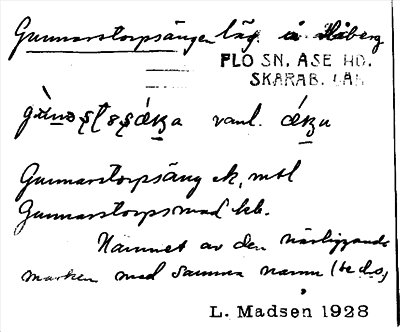 Gunnarstorpsängen läg. å Håberg
FLO SN. ÅSE HD.
SKARAB. LÄN
vanl.
Gunnarstorpsäng ek, mtl
Gunnarstorpsmad kb.
Namnet av den närliggande
marken med samma namn (se d.o.)
L. Madsen 1928